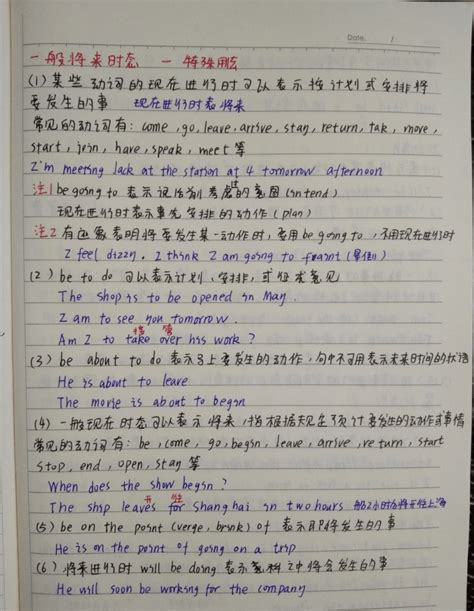 Date.    /
一般将来时态 — 特殊用法
(1) 某些动词的现在进行时可以表示按计划或安排将
要发生的事  现在进行时表将来
常见的动词有: come, go, leave, arrive, stay, return, tak, move,
start, join, have, speak, meet 等
I'm meeting lack at the station at 4 tomorrow afternoon
注1 be going to 表示说话前考虑过的意图 (intend)
现在进行时表示事先安排的动作 (plan)
注2 有迹象表明将要发生某一动作时, 要用 be going to, 不用现在进行时
I feel dizzy. I think I am going to faint (晕倒)
(2) be to do 可以表示计划, 安排, 或征求意见
The shop is to be opened in May.
I am to see you tomorrow.
Am I to take over his work ?
(3) be about to do 表示马上要发生的动作, 句中不可用表示未来时间的状语
He is about to leave
The movie is about to begin
(4) 一般现在时态可以表示将来, 指根据规定预计要发生的动作或事情
常见的动词有: be, come, go, begin, leave, arrive, return, start
stop, end, open, stay 等
When does the show begin ?
开 往
The ship leaves for Shanghai in two hours 船2小时后将开往上海
(5) be on the point (verge, brink) of 表示即将发生的事
He is on the point of going on a trip
(6) 将来进行时 will be doing 表示 将会发生的事
He will soon be working for the company